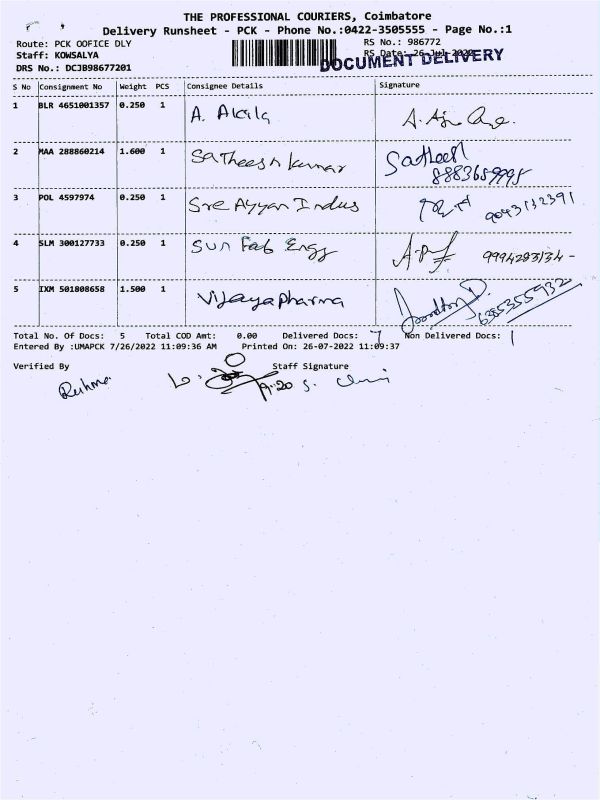 THE PROFESSIONAL COURIERS, Coimbatore
Delivery Runsheet - PCK - Phone No.:0422-3505555 - Page No.:1
Route: PCK OOFICE DLY RS No.: 986772
Staff: KOWSALYA RS Date: 26-Jul-2022
DOCUMENT DELIVERY
DRS No.: DCJB98677201
S No Consignment No Weight PCS Consignee Details Signature
1 BLR 4651001357 0.250 1 A. Akila
2 MAA 288860214 1.600 1 Satheesh kumar Satheesh
8883659995
3 POL 4597974 0.250 1 Sre Ayyan Indus 9043132391
4 SLM 300127733 0.250 1 Sun Fab Engg 9994283134 -
5 IXM 501808658 1.500 1 Vijayapharma 6385355932
Total No. Of Docs: 5 Total COD Amt: 0.00 Delivered Docs: 7 Non Delivered Docs: 1
Entered By :UMAPCK 7/26/2022 11:09:36 AM Printed On: 26-07-2022 11:09:37
Verified By Staff Signature
9.20 S.